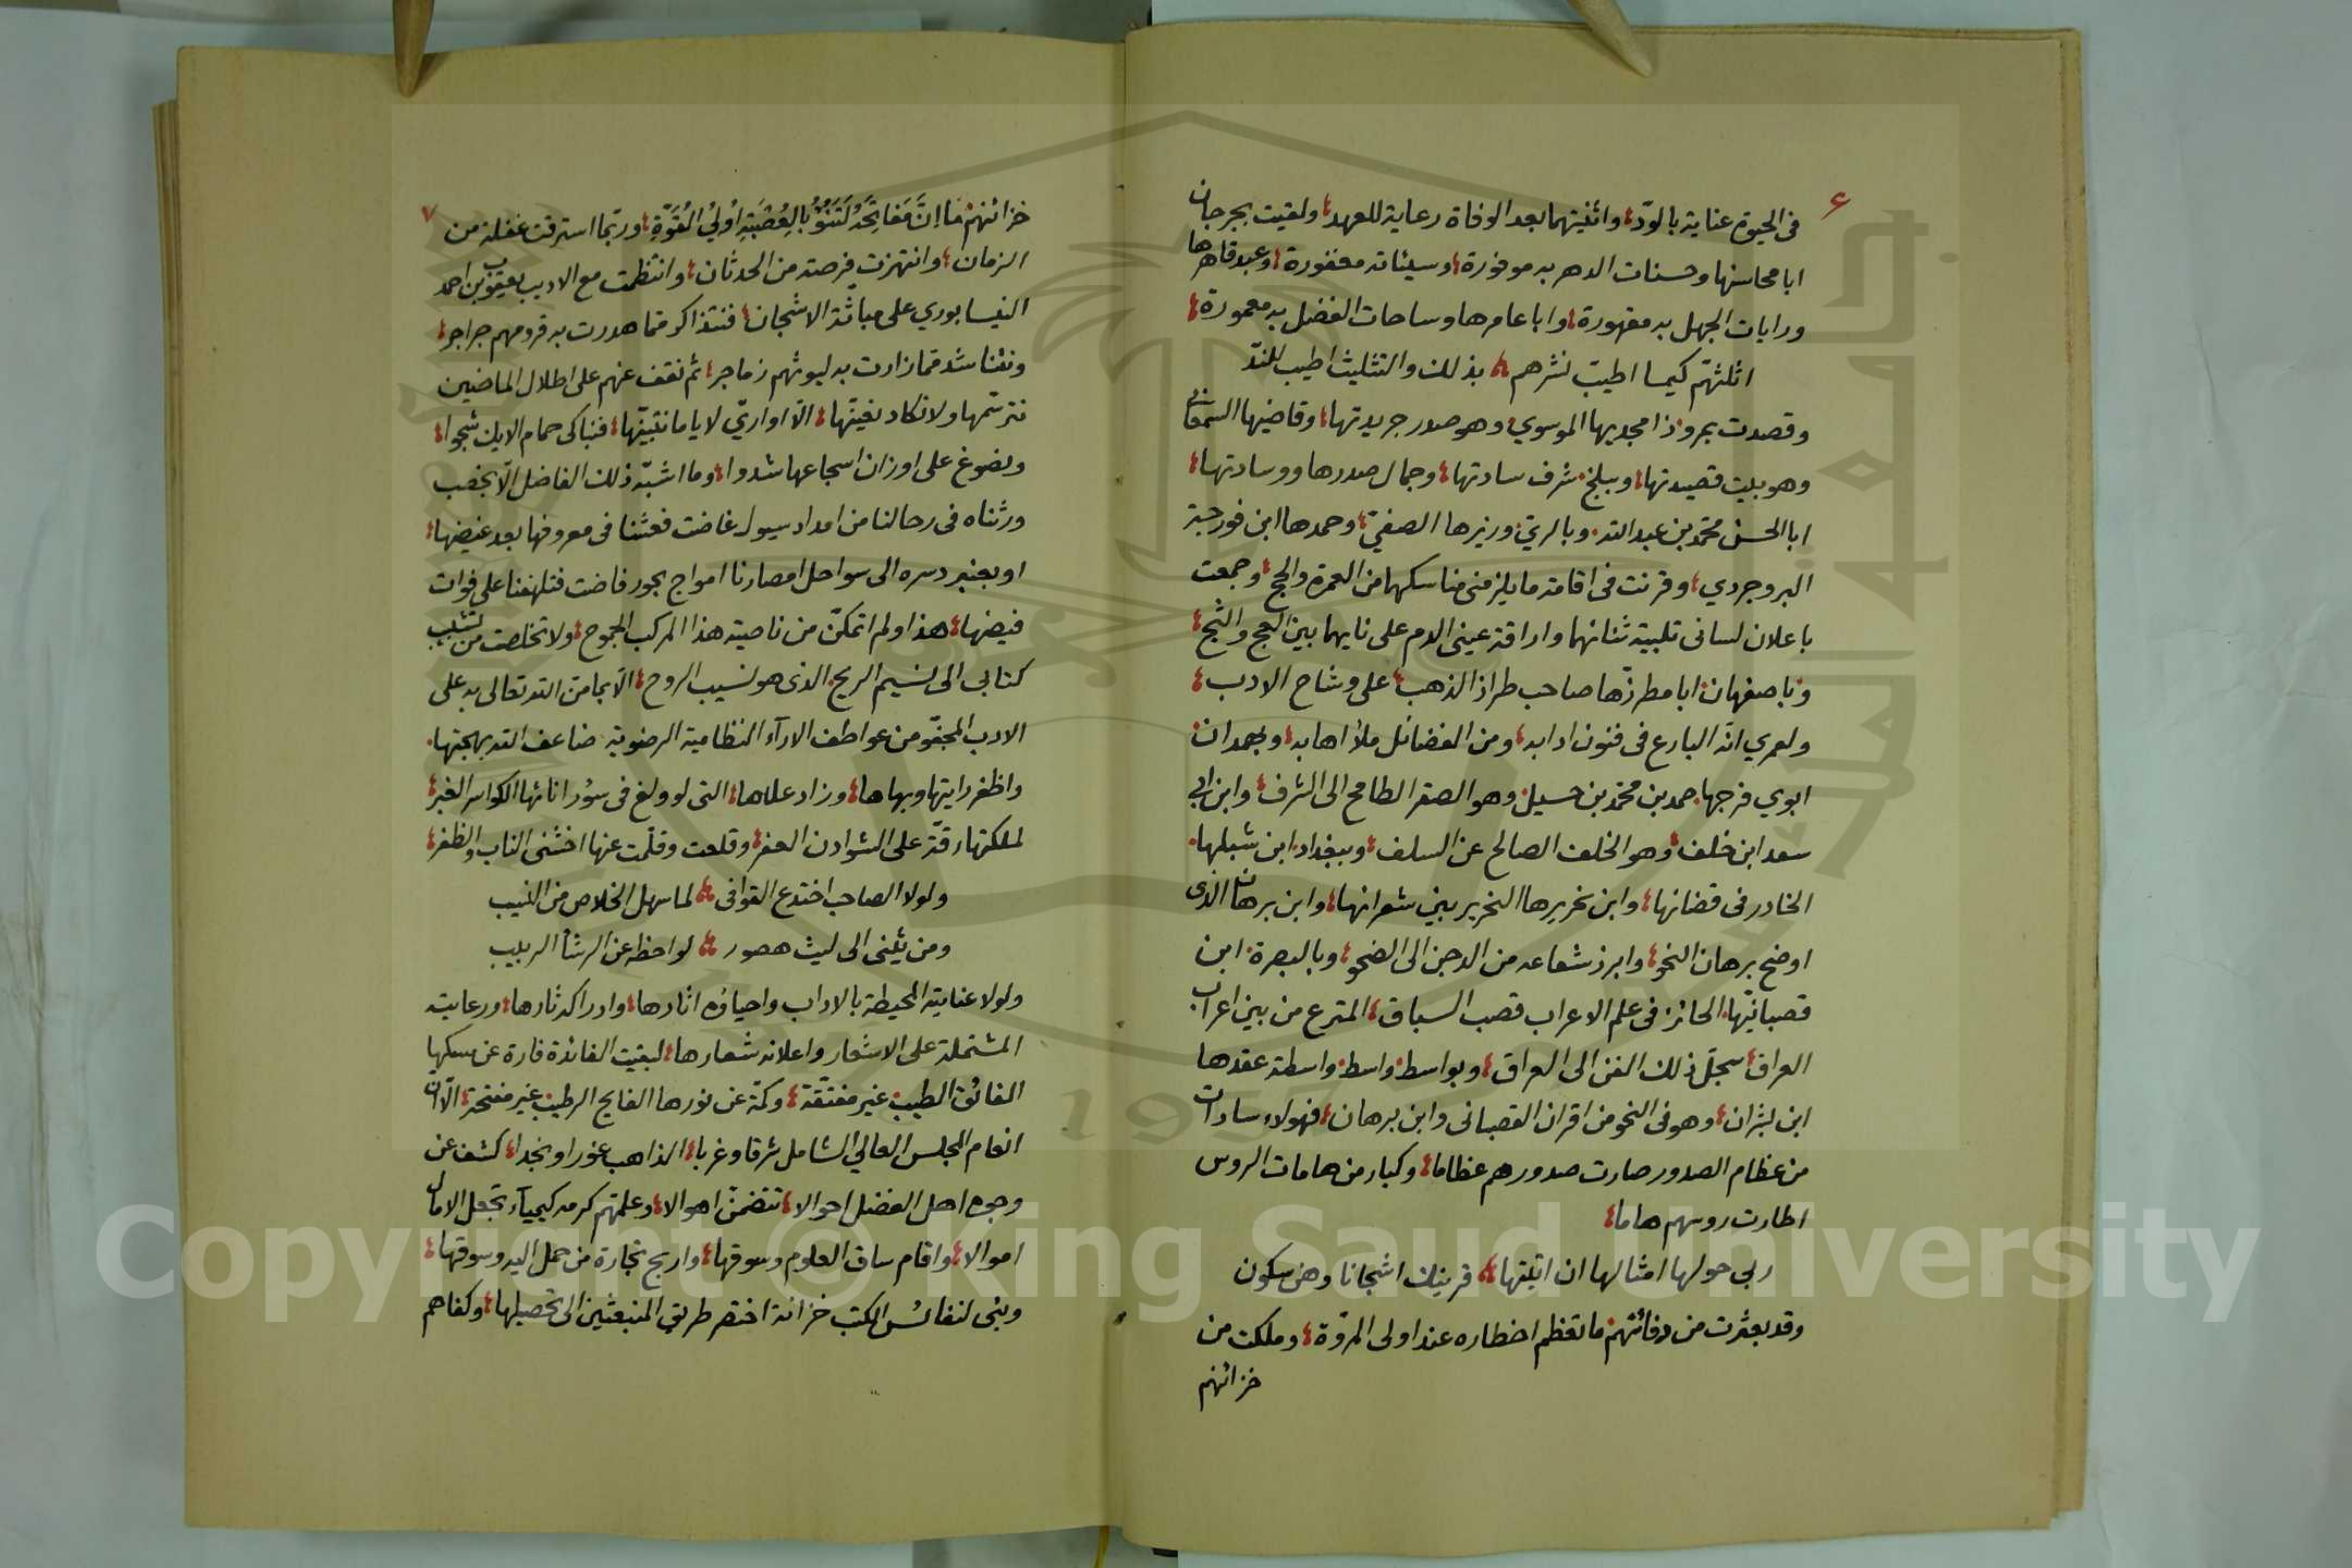 ٦
في الحيوة عناية بالودّ، واثنيتهما بعد الوفاة رعاية للعهد، ولقيت بجرجان
ابا محاسنها وحسنات الدهر به موفورة، وسيئاته مغفورة، وعبد قاهرها
ورايات الجهل به مقهورة، وابا عامرها وساحات الفضل به معمورة،
اثلثهم كيما اطيب نشرهم بذلك والتثليث اطيب للندّ
وقصدت بمرو ذا مجديها الموسوي وهو صدر جريدتها، وقاضيها السمعاني
وهو بيت قصيدتها، وببلخ شرف سادتها، وجمال صدرها ووسادتها،
ابا الحسن محمد بن عبد الله وبالري وزيرها الصفيّ، وحمدها ابن فورجة
البروجردي، وقرنت في اقامة ما يلزمني مناسكهما من العمرة والحج، وجمعت
باعلان لساني تلبية ثنائهما واراقة عيني الدم على نايهما بين العج والثج،
وباصفهان ابا مطرزها صاحب طراز الذهب، على وشاح الادب،
ولعمري انه البارع في فنون ادابه، ومن الفضائل ملأ اهابه، وبهمدان
ابوي فرجها حمد بن محمد بن حسيل وهو الصقر الطامح الى الشرف، وابن ابي
سعد ابن خلف، وهو الخلف الصالح عن السلف، وببغداد ابن شبلها
الخادر في قضائها، وابن نحريرها النحرير بين شعرائها، وابن برهان الذى
اوضح برهان النحو، وابرز شعاعه من الدجن الى الضحو، وبالبصرة ابن
قصبانيّها الحائز في علم الاعراب قصب السباق، المترع من بين اعراب
العراق سجل ذلك الفن الى العراق، وبواسط واسط واسطة عقدها
ابن بشران، وهو في النحو من اقران القصباني وابن برهان، فهولاء سادات
من عظام الصدور صارت صدورهم عظاما، وكبار من هامات الروس
اطارت روسهم هاما،
ربى حولها امثالها ان اتيتها قرينك اشجانا وهن سكون
وقد بعثرت من دفائنهم ما تعظم اخطاره عند اولى المروة، وملكت من
خزائنهم
٧
خزائنهم مَا اِنَّ مَفَاتِحَهُ لَتَنُوءُ بِالْعُصْبَةِ اُولِي الْقُوَّةِ، وربما استرقت غفلة من
الزمان، وانتهزت فرصة من الحدثان، وانتظمت مع الاديب يعقوب بن احمد
النيسابوري على مباثّة الاشجان، فنتذاكر مما هدرت به قرومهم جراجر،
ونتناشد مما زارت به ليوثهم زماجر، ثم نقف عنهم على اطلال الماضين
نترسّمها ولا نكاد نفيتها، الا اواريّ لايا ما نتبيّنها، فنباكى حمام الايك شجوا،
ونصوغ على اوزان اسجاعها شدوا، وما اشبّه ذلك الفاضل الا بخصب
ورثناه في رحالنا من امداد سيول غاضت فعثنا في معروفها بعد غيضها،
او بعنبر دسره الى سواحل امصارنا امواج بحور فاضت فتلهفنا على فوات
فيضها، هذا ولم اتمكن من ناصية هذا المركب الجموح، ولا تخلصت من تشبيب
كتابي الى نسيم الريح الذي هو نسيب الروح، الا بما من الله تعالى به على
الادب المجفوّ من عواطف الاراء النظامية الرضوية ضاعف الله بهجتها
واظفر رايتها وبهاها، وزاد علاها، التى لو ولغ في سؤر انائها الكواسر الغبر،
لملكتها رقة على الشوادن العفر، وقلعت وقلّمت عنها اخشنى الناب والظفر،
ولولا الصاحب اختدع القوافى لما سهل الخلاص من النسيب
ومن يثنى الى ليث هصور لواحظه عن الرشأ الربيب
ولولا عنايته المحيطة بالاداب واحياؤه اثارها، وادراكه ثارها، ورعايته
المشتملة على الاشعار واعلانه شعارها، لبقيت الفائدة فارة عن مسكها
الفائق الطيب غير مفتقة، وكمة عن نورها الفايح الرطيب غير مفتحة، الا ان
انعام المجلس العالي الشامل شرقا وغربا، الذاهب غورا ونجدا، كشف عن
وجوه اهل الفضل احوالا، تتضمن اهوالا، وعلمتهم كرمه كيمياء تجعل الامال
اموالا، واقام ساق العلوم وسوقها، واربح تجارة من حمل اليه وسوقها،
وبنى لنفائس الكتب خزانة اختصر طريق المنبعثين الى تحصيلها، وكفاهم
Copyright © King Saud University
جامعة الملك سعود
1957